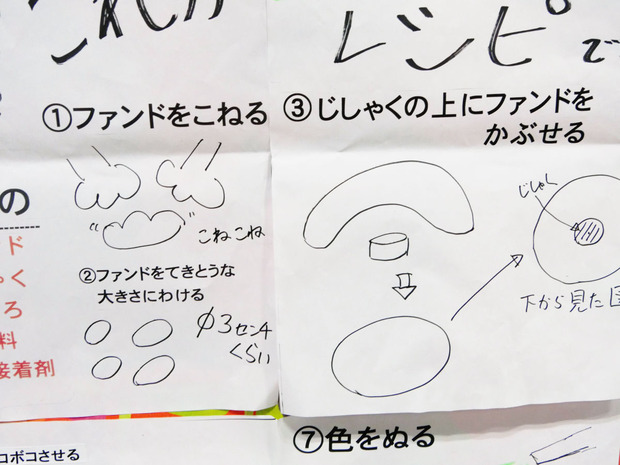 これが
レシピで
①ファンドをこねる
こねこね
②ファンドをてきとうな
大きさにわける
φ3センチ
くらい
③じしゃくの上にファンドを
かぶせる
じしゃく
下から見た図
の
ド
ゃく
ろ
料
接着剤
コボコさせる
⑦色をぬる